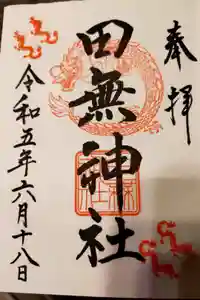 奉拝
田無神社
令和五年六月十八日